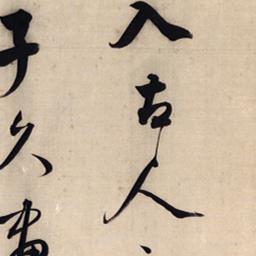 入古人
子久畫